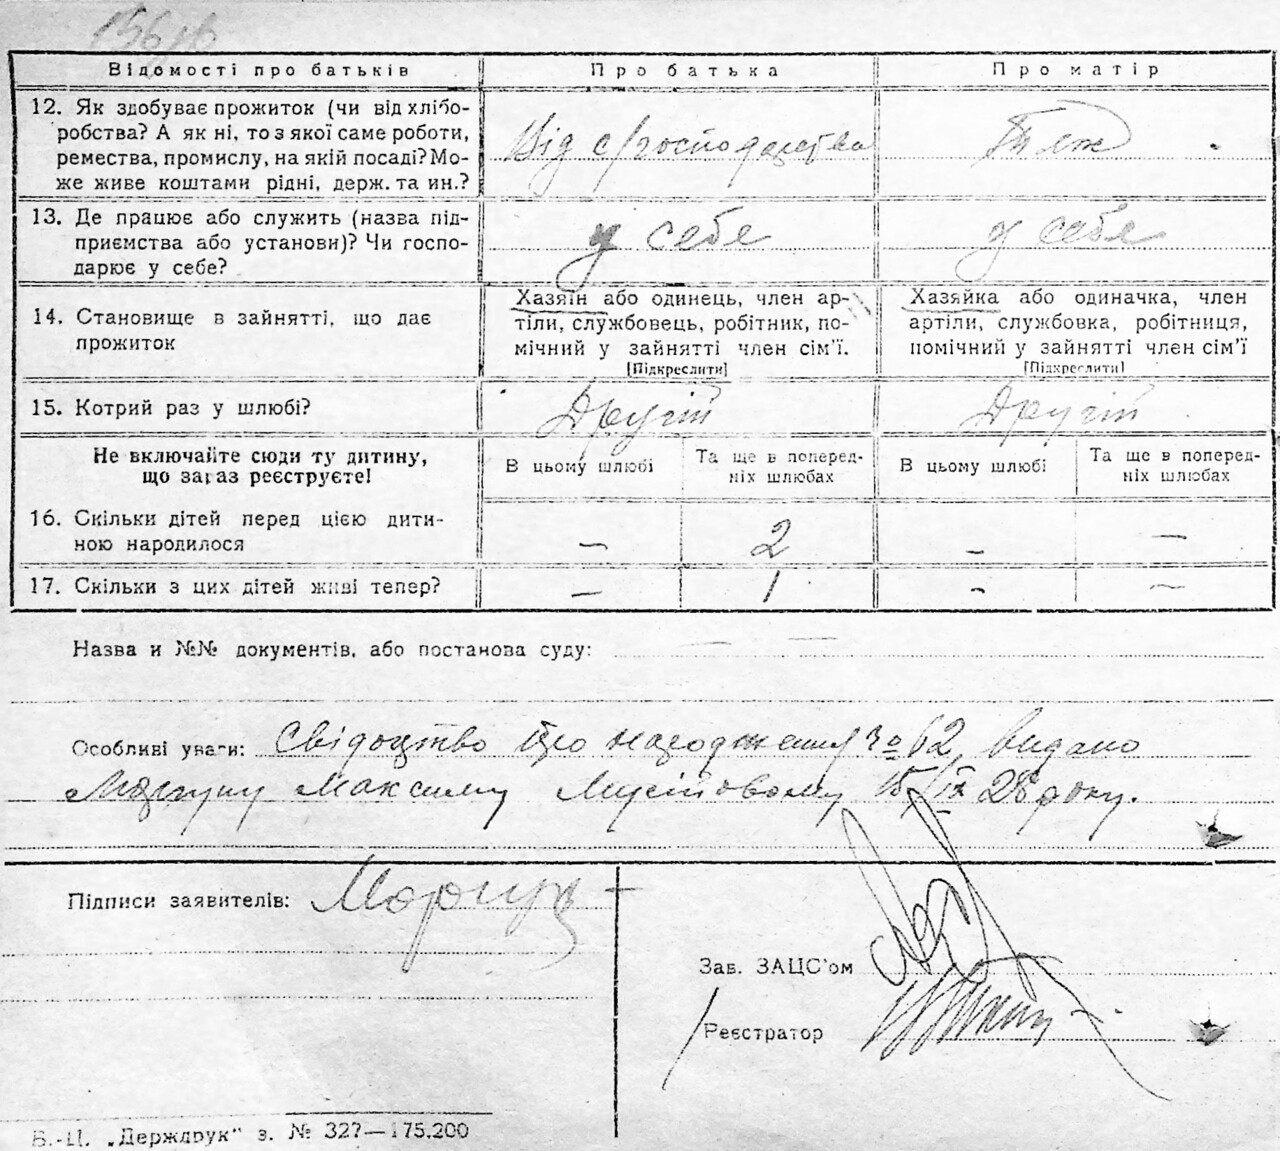 156
Відомості про батьків Про батька Про матір
12. Як здобуває прожиток (чи від хлібо-
робства? А як ні, то з якої саме роботи,
ремества, промислу, на якій посаді? Мо-
же живе коштами рідні, держ. та ин.?
Від с/господарства Теж
13. Де працює або служить (назва під-
приємства або установи)? Чи госпо-
дарює у себе?
у себе у себе
14. Становище в зайнятті, що дає
прожиток
Хазяїн або одинець, член ар-
тіли, службовець, робітник, по-
мічний у зайнятті член сім’ї.
[Підкреслити]
Хазяйка або одиначка, член
артіли, службовка, робітниця,
помічний у зайнятті член сім’ї
[Підкреслити]
15. Котрий раз у шлюбі? Другій Другій
Не включайте сюди ту дитину,
що зараз реєструєте!
В цьому шлюбі
Та ще в поперед-
ніх шлюбах
В цьому шлюбі
Та ще в поперед-
ніх шлюбах
16. Скільки дітей перед цією дити-
ною народилося
— 2 — —
17. Скільки з цих дітей живі тепер? — 1 — —
Назва и №№ документів, або постанова суду: — —
Особливі уваги: Свідоцтво про народження № 62 видано
Максиму 15/IX 28 року.
Підписи заявителів:
Зав. ЗАЦС’ом
Реєстратор
В.-Ц. „Держдрук“ з. № 327—175.200